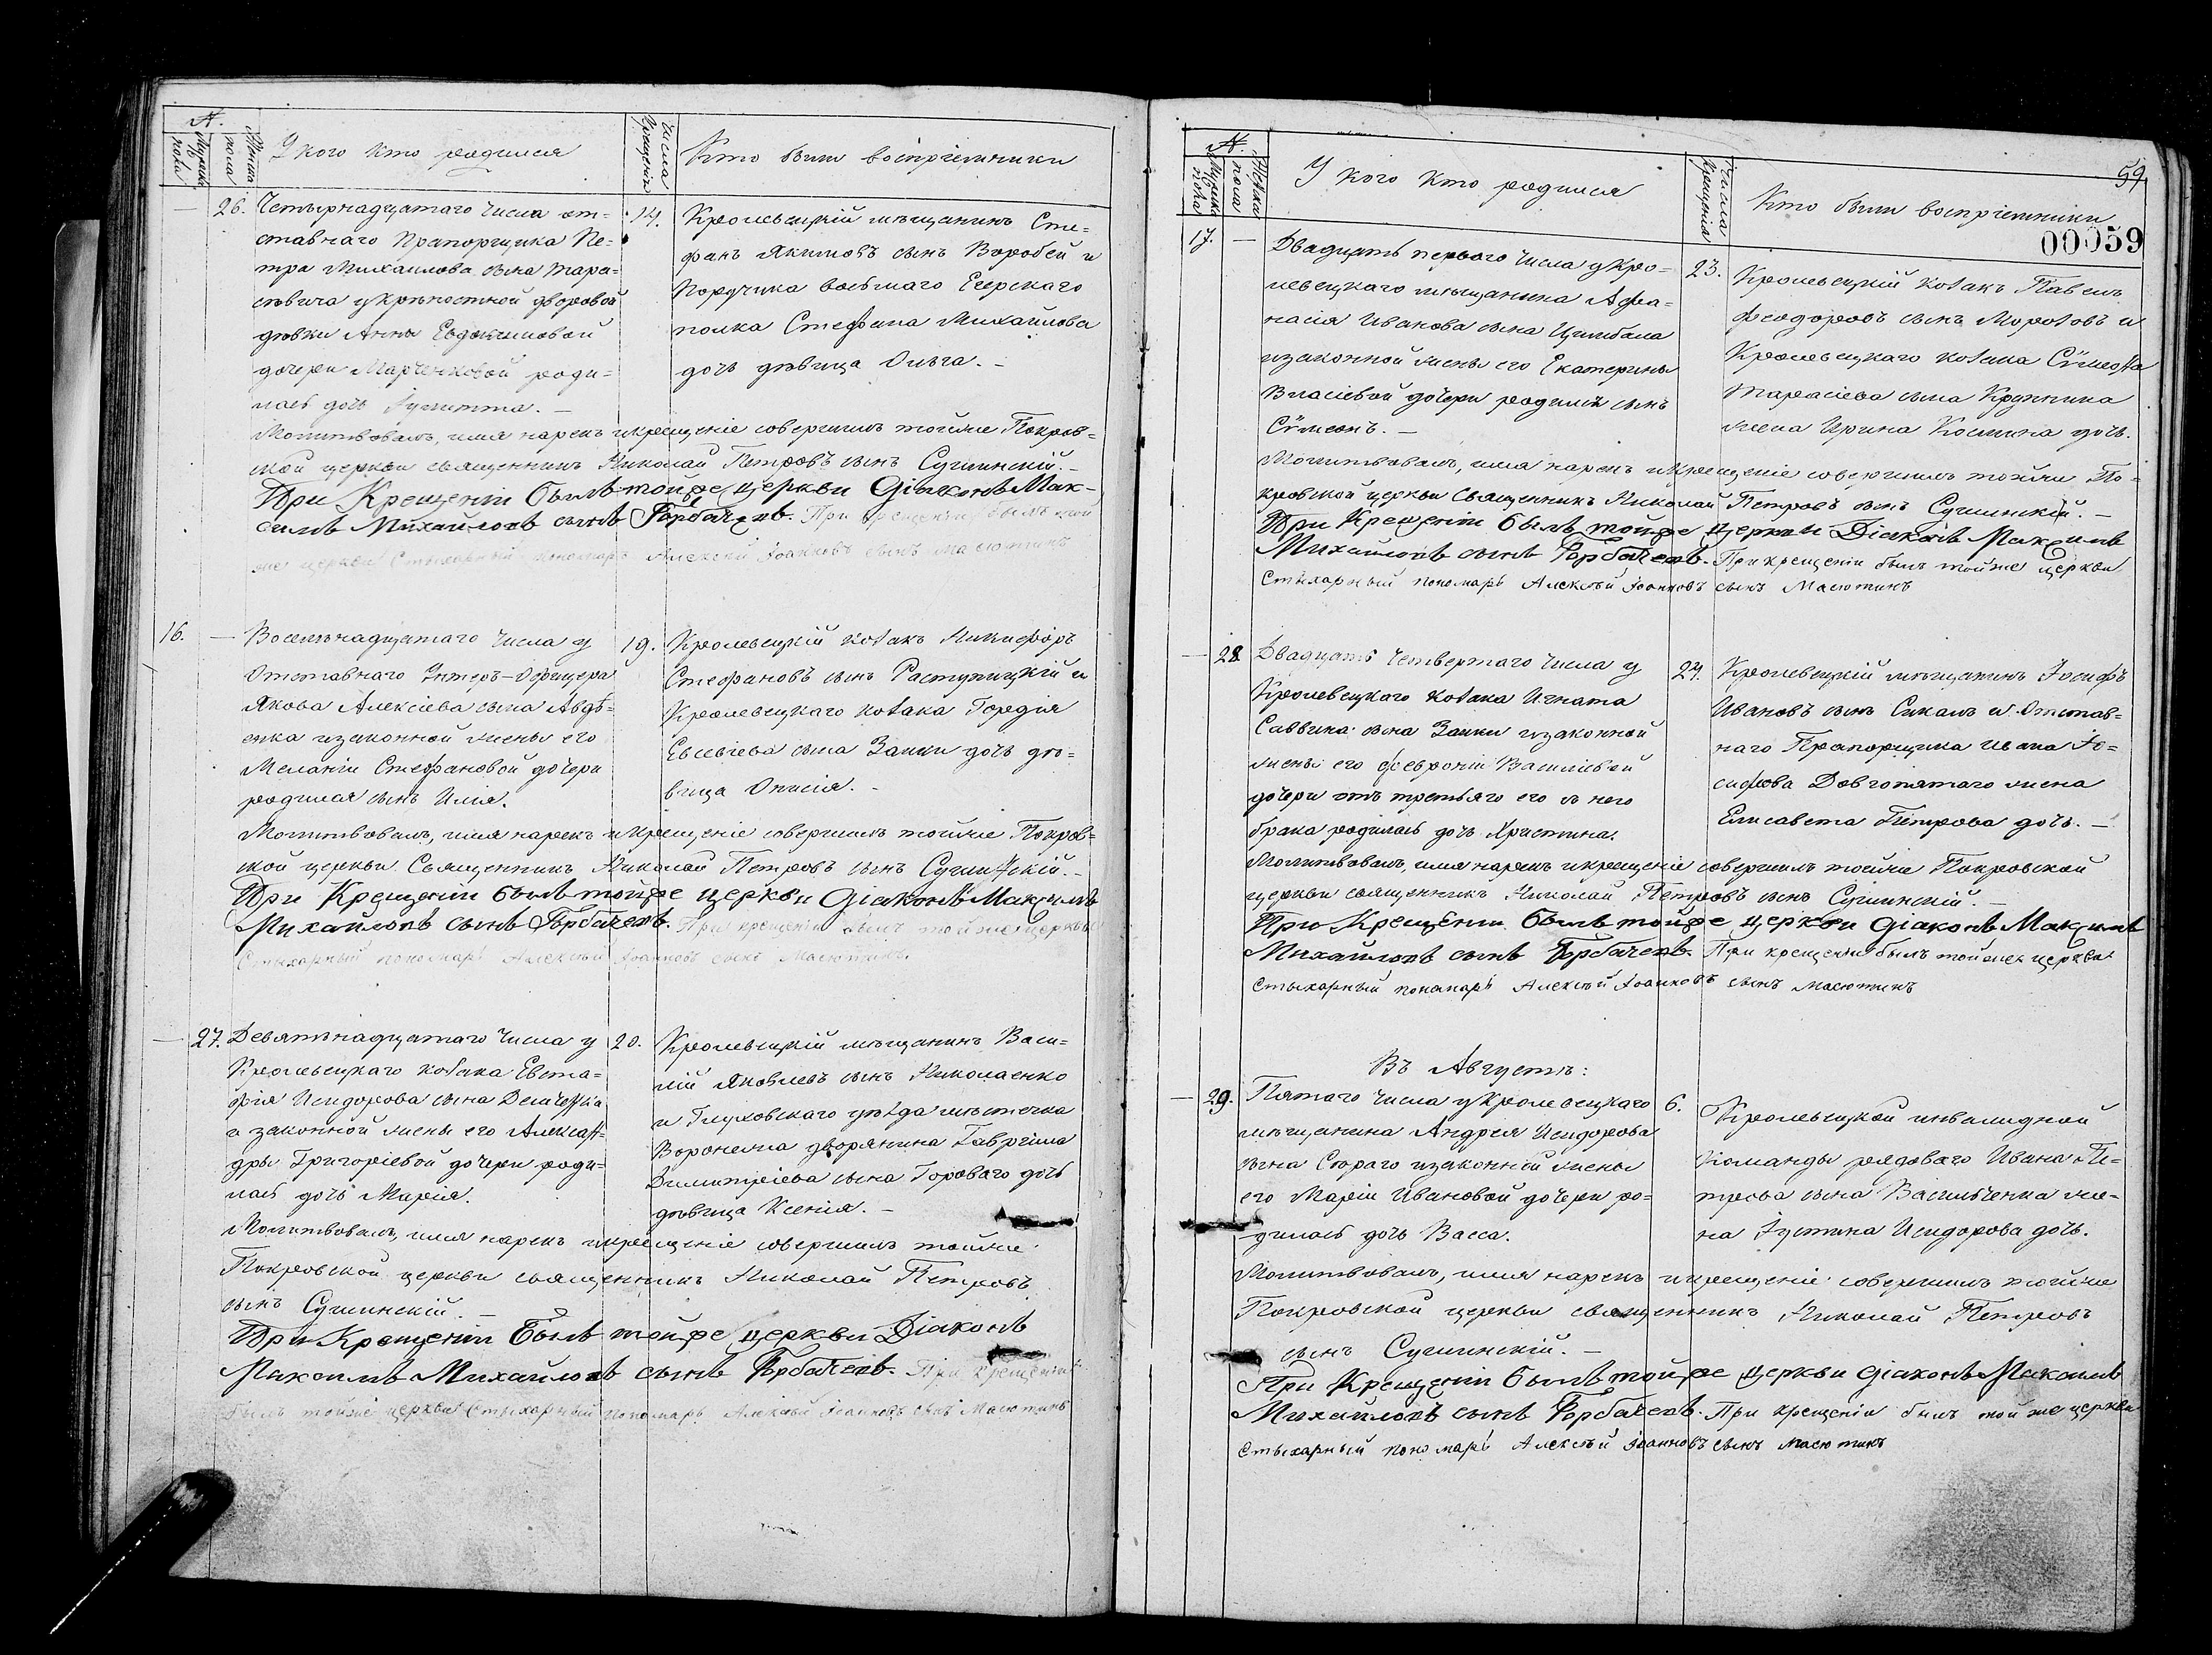 №.
Мужеска пола
Женска пола
У кого кто родился
Числа Крещенія
Кто были воспріемники
26. Четырнадцатаго числа от=
ставнаго Прапорщика Пе=
тра Михаилова сына Тара=
севича у крѣпостной дворовой
дѣвки Анны Евдокимовой
дочери Марченковой роди=
лась дочь Іулитта. –
14. Кролевецкій мѣщанинъ Сте=
фанъ Якимовъ сынъ Воробей и
Порутчика восьмаго Егерскаго
полка Стефана Михайлова
дочь дѣвица Ольга. –
Молитвовалъ, имя нарекъ и крещеніе совершилъ тойже Покров=
ской церкви священникъ Николай Петровъ сынъ Сушинскій. –
При Крещеніи былъ тойже церкви Діаконъ Мак-
симъ Михайловъ сынъ Горбачевъ. При крещеніи былъ той
же церкви Стихарный пономарь Алексѣй Іоанновъ сынъ Масютинъ
16. Восемьнадцатаго числа у
Отставнаго Унтеръ-Офицера
Якова Алексіева сына Авдѣ=
енка и законной жены его
Меланіи Стефановой дочери
родился сынъ Илія.
19. Кролевецкій козакъ Никифоръ
Стефановъ сынъ Раступицкій и
Кролевецкаго козака Гордія
Евсевіева сына Заики дочь дѣ=
вица Онисія. –
Молитвовалъ, имя нарекъ и крещеніе совершилъ тойже Покров=
ской церкви Священникъ Николай Петровъ сынъ Сушинскій. –
При Крещеніи былъ тойже церкви Діаконъ Максимъ
Михайловъ сынъ Горбачевъ. При крещеніи былъ тойже церкви
Стихарный пономарь Алексѣй Іоанновъ сынъ Масютинъ.
27. Девятьнадцатаго числа у
Кролевецкаго козака Евста=
фія Исидорова сына
и законной жены его Алексан=
дры Григоріевой дочери роди=
лась дочь Марія.
20. Кролевецкій мѣщанинъ Васи=
лій Яковлевъ сынъ Николаенко
и Глуховскаго уѣзда мѣстечка
Воронежа дворянина Гавріила
Димитріева сына Горового дочь
дѣвица Ксенія. –
Молитвовалъ, имя нарекъ и крещеніе совершилъ тойже
Покровской церкви священникъ Николай Петровъ
сынъ Сушинскій. –
При Крещеніи былъ тойже церкви Діаконъ
Максимъ Михайловъ сынъ Горбачевъ. При крещеніи
былъ тойже церкви Стихарный пономарь Алексѣй Іоанновъ сынъ Масютинъ
59
00059
№.
Мужеска пола
Женска пола
У кого кто родился
Числа Крещенія
Кто были воспріемники
17. Двадцать перваго числа у Кро=
левецкаго мѣщанина Афа=
насія Иванова сына Цимбала
и законной жены его Екатерины
Власіевой дочери родился сынъ
Сѵмеонъ. –
23. Кролевецкій козакъ Павелъ
Феодоровъ сынъ Морозовъ и
Кролевецкаго козака Сѵмеона
Тарасіева сына Крупника
жена Ирина Космина дочь.
Молитвовалъ, имя нарекъ и крещеніе совершилъ тойже По=
кровской церкви Священникъ Николай Петровъ сынъ Сушинскій. –
При Крещеніи былъ тойже церкви Діаконъ Максимъ
Михайловъ сынъ Горбачевъ. При крещеніи былъ тойже церкви
Стихарный пономарь Алексѣй Іоанновъ сынъ Масютинъ
28. Двадцать четвертаго числа у
Кролевецкого козака Игната
Саввина сына Заики и законной
жены его Февроніи Василіевой
дочери отъ третьяго его и нею
брака родилась дочь Христина.
24. Кролевецкій мѣщанинъ Іосифъ
Ивановъ сынъ Сикалъ и Отстав=
наго Прапорщика Ивана Іо=
сифова Довгопятаго жена
Елисавета Петрова дочь. –
Молитвовалъ, имя нарекъ и крещеніе совершилъ тойже Покровской
церкви священникъ Николай Петровъ сынъ Сушинскій. –
При Крещеніи былъ тойже церкви Діаконъ Максимъ
Михайловъ сынъ Горбачевъ. При крещеніи былъ тойже церкви
Стихарный пономарь Алексѣй Іоанновъ сынъ Масютинъ
Въ Августѣ:
29. Пятаго числа у Кролевецкаго
мѣщанина Андрея Исидорова
сына Сѣраго и законной жены
его Маріи Ивановой дочери ро=
дилась дочь Васса.
6. Кролевецкой инвалидной
команды рядоваго Ивана Пе=
трова сына Васильченка же=
на Іустина Исидорова дочь.
Молитвовалъ, имя нарекъ и крещеніе совершилъ тойже
Покровской церкви священникъ Николай Петровъ
сынъ Сушинскій. –
При Крещеніи былъ тойже церкви Діаконъ Максимъ
Михайловъ сынъ Горбачевъ. При крещеніи былъ той же церкви
Стихарный пономарь Алексѣй Іоанновъ сынъ Масютинъ